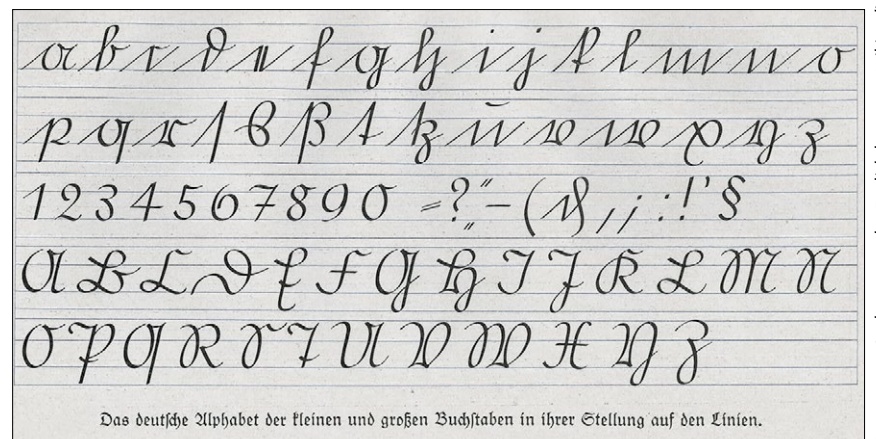 a b c d e f g h i j k l m n o
p q r ſ s ß t tz ŭ v w x y z
1 2 3 4 5 6 7 8 9 0 = ? „ “ – ( & , ; : ! ’ §
A B C D E F G H I J K L M N
O P Q R S T U V W X Y Z
Das deutſche Alphabet der kleinen und großen Buchſtaben in ihrer Stellung auf den Linien.